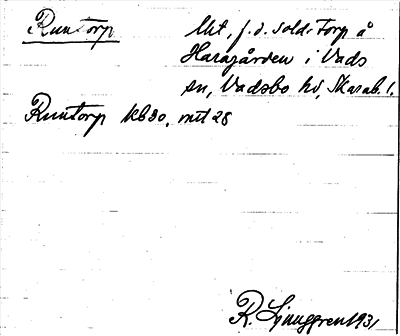 Runtorp
lht, f.d. sold. Torp å
Haragården i Vads
sn, Vadsbo hd, Skarab. l.
Runtorp kb 90, mtl 28
R. Ljunggren 1931